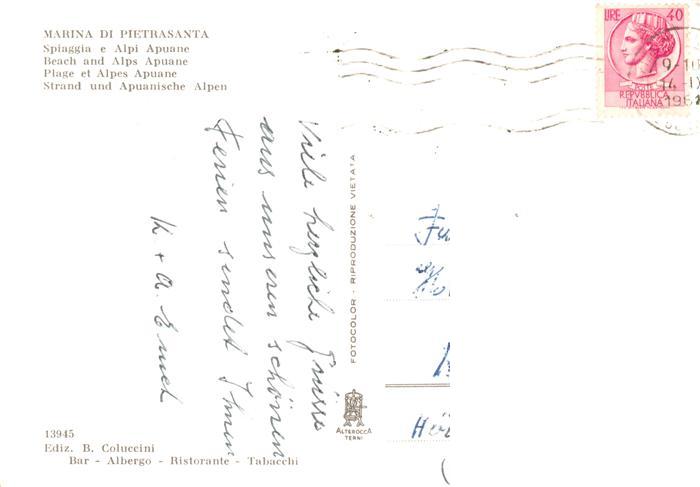 MARINA DI PIETRASANTA
Spiaggia e Alpi Apuane
Beach and Alps Apuane
Plage et Alpes Apuane
Strand und Apuanische Alpen
LIRE 40
POSTE
REPVBBLICA
ITALIANA
9-10
14-IX
196
Viele herzliche Grüsse
aus unseren schönen
Ferien sendet Ihnen
K. + A.
FOTOCOLOR - RIPRODUZIONE VIETATA
ALTEROCCA
TERNI
13945
Ediz. B. Coluccini
Bar - Albergo - Ristorante - Tabacchi